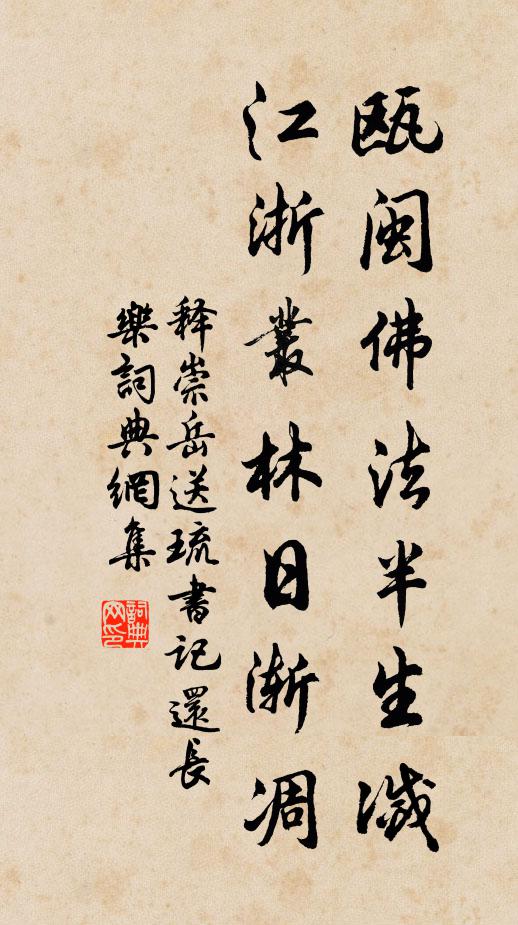 甌閩佛法半生滅
江浙叢林日漸凋
释崇岳送琉書記還長
樂詞典網集
詞典網印